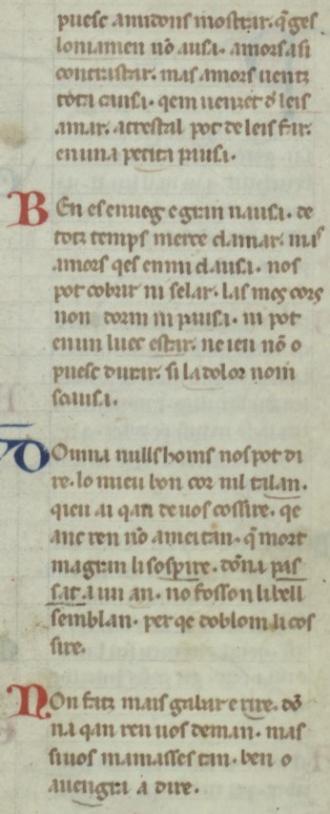 puesc amidons mostrar. q̃ ges
loniamen nõ ausi. amors asi
contristar. mas amors uentz
tota causi. qem uenret d̃ leis
amar. atrestal pot de leis far.
en una petita pausi.
BEn es enueg e gran nausi. de
totz temps merce clamar. mas
amors qes enmi clausi. nos
pot cobrir ni selar. las mos cors
non dorm ni pausi. ni pot
en un luec estar. ne ieu nõ o
puesc durar. si la dolor nom
soausi.
DOmna nulls homs nos pot di
re. lo mieu bon cor nil talan.
qieu ai qan de uos cossire. qe
anc ren nõ amei tan. q̃ mort
magran li sospire. dõna pas
sat a un an. no fosson li bell
semblan. per qe doblom li cos
sire.
NOn fatz mais gabar e rire. dõ
na qan ren uos deman. mas
si uos mamasses tan. ben o
auengra a dire.